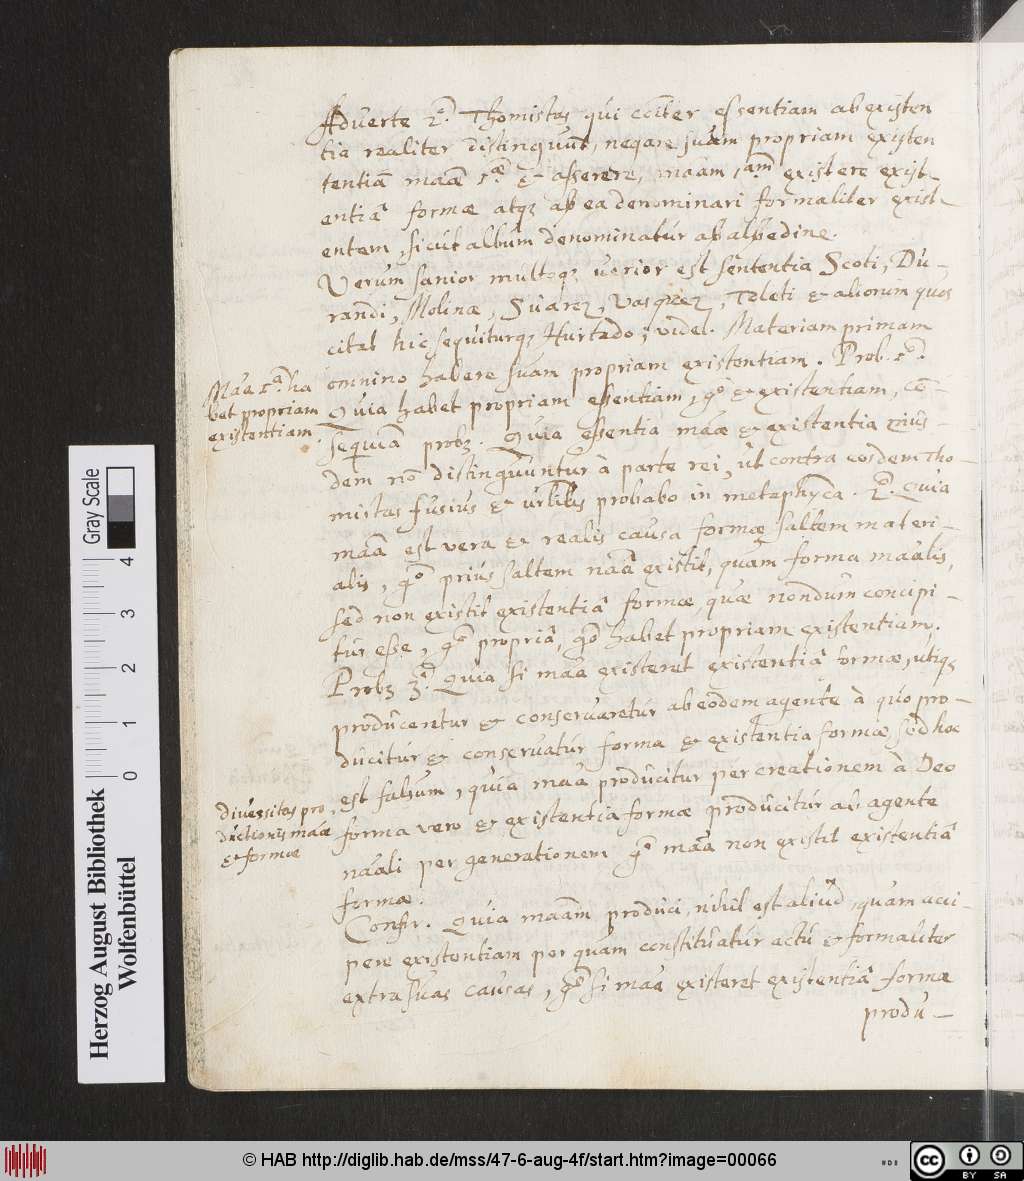 Adverte 2º. Thomistas qui coĩter essentiam ab existen
tia realiter distinguunt, negare suam propriam existen
tentiã maãe 1ae & asserere, maãm 1am existere exist-
entiâ formæ atqꝫ ab ea denominari formaliter exist-
entem, sicut album denominatur ab albedine.
Verum sanior multoqꝫ verior est sententia Scoti, Du-
randi, Molinæ, Suarez, Vasquez, Toleti & aliorum quos
citat hic sequiturqꝫ Hurtado; videl. Materiam primam
omnino habere suam propriam existentiam. Prob. 1º.
Quia habet propriam essentiam, gº & existentiam, cõ-
sequĩa probꝫ. Quia essentia maæ & existentia eius-
dem nõ distinguuntur à parte rei, ut contra eosdem Tho-
mistas fusius & probabo in metaphyca. 2º. Quia
maã est vera & realis causa formæ saltem materi-
alis, gº prius saltem naâ existit, quam forma maalis,
sed non existit existentiâ formæ, quæ nondum concipi-
tur esse, gº propriâ, gº habet propriam existentiam.
Probꝫ 3º. Quia si maa existeret existentiâ formæ, utiqꝫ
produceretur & conservaretur ab eodem agente à quo pro-
ducitur & conservatur forma & existentia formæ, sed hoc
est falsum, quia maa producitur per creationem à Deo
forma vero & existentia formæ producitur ab agente
naãli per generationem gº maã non existit existentiâ
formæ.
Confir. Quia maãm produci, nihil est aliud, quam acci-
pere existentiam per quam constituatur actu & formaliter
extra suas causas, gº si maa existeret existentiâ formæ
produ-
Maã 1a ha
bet propriam
existentiam.
Diversitas pro
ductionis maæ
& formæ
Herzog August Bibliothek
Wolfenbüttel
Gray Scale
0 1 2 3 4
© HAB http://diglib.hab.de/mss/47-6-aug-4f/start.htm?image=00066
cc BY SA